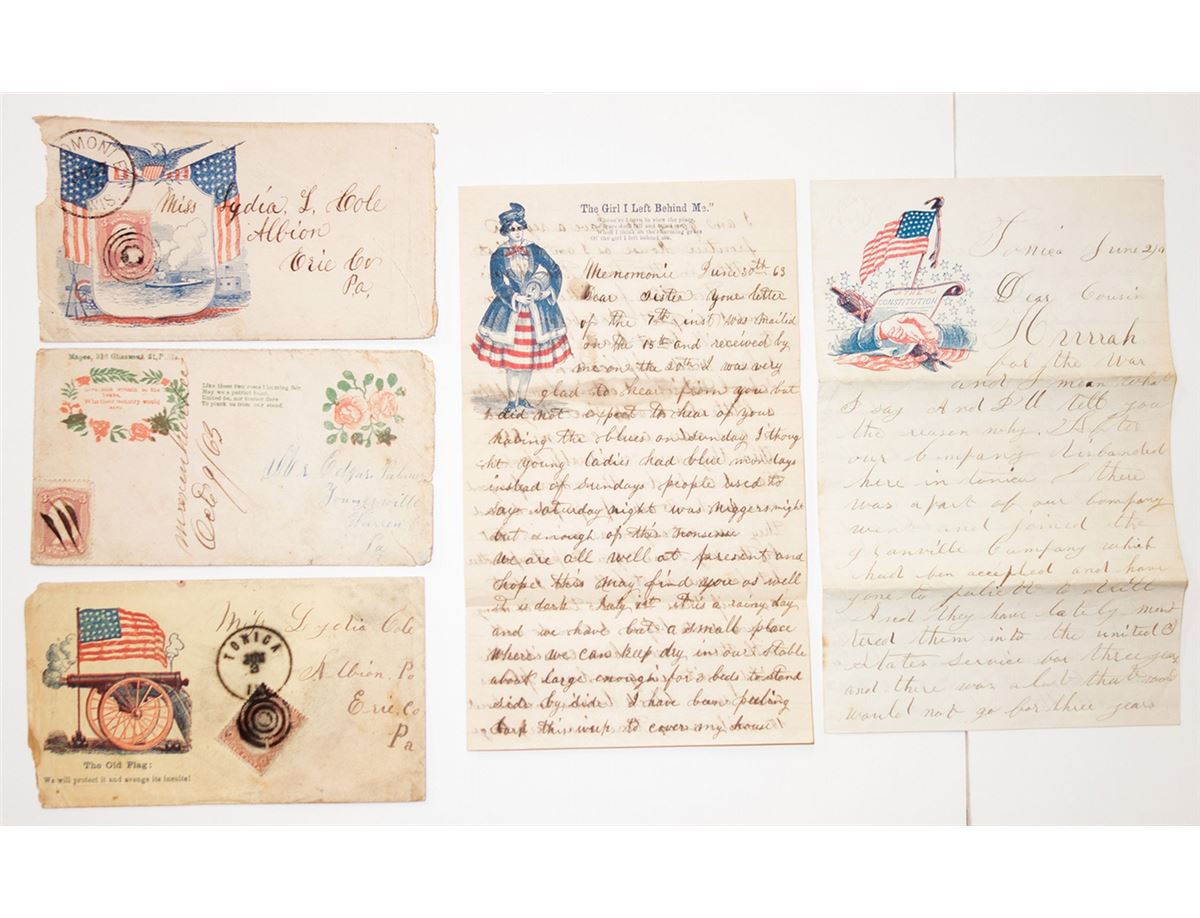 OMONI
WIS
Miss Lydia, L, Cole
Albion
Erie Co
Pa,
Magee, 316 Chestnut St, Phila.
Like these two roses blooming fair
May we a patriot band,
United be, nor traitor dare
To pluck us from our stand.
Oct 9/63
Mr Edgar
Youngsville
Warren Co
Pa
Miss Lydia Cole
TONICA
Albion, Po
Erie, Co
Pa
The Old Flag:
We will protect it and avenge its insults!
"The Girl I Left Behind Me."
Of the girl I left behind me.
Menomonie June 30th 63
Dear Sister your letter
of the 7th inst was mailed
on the 15th and received by
me on the 20th I was very
glad to hear from you but
did not expect to hear of your
having the blues on sunday I thoug
ht young ladies had blue mondays
instead of sundays people used to
say saturday night was niggers night
but enough of this nonsense
we are all well at present and
hope this may find you as well
it is dark July 1st it is a rainy day
and we have but a small place
where we can keep dry in our stable
about large enough for 3 beds to stand
side by side I have been peeling
bark this week to cover my house
THE
CONSTITUTION
Tonica June 2/
Dear Cousin
Hurrrah
for the War
and I mean what
I say And I'll tell you
the reason why. After
our Company disbanded
here in tonica there
was a part of our company
went and joined the
granville Company which
had ben accepted and have
gone to joliett to drill
And they have lately mus
tered them into the united
States service for three years
and there was a lot that
would not go for three years